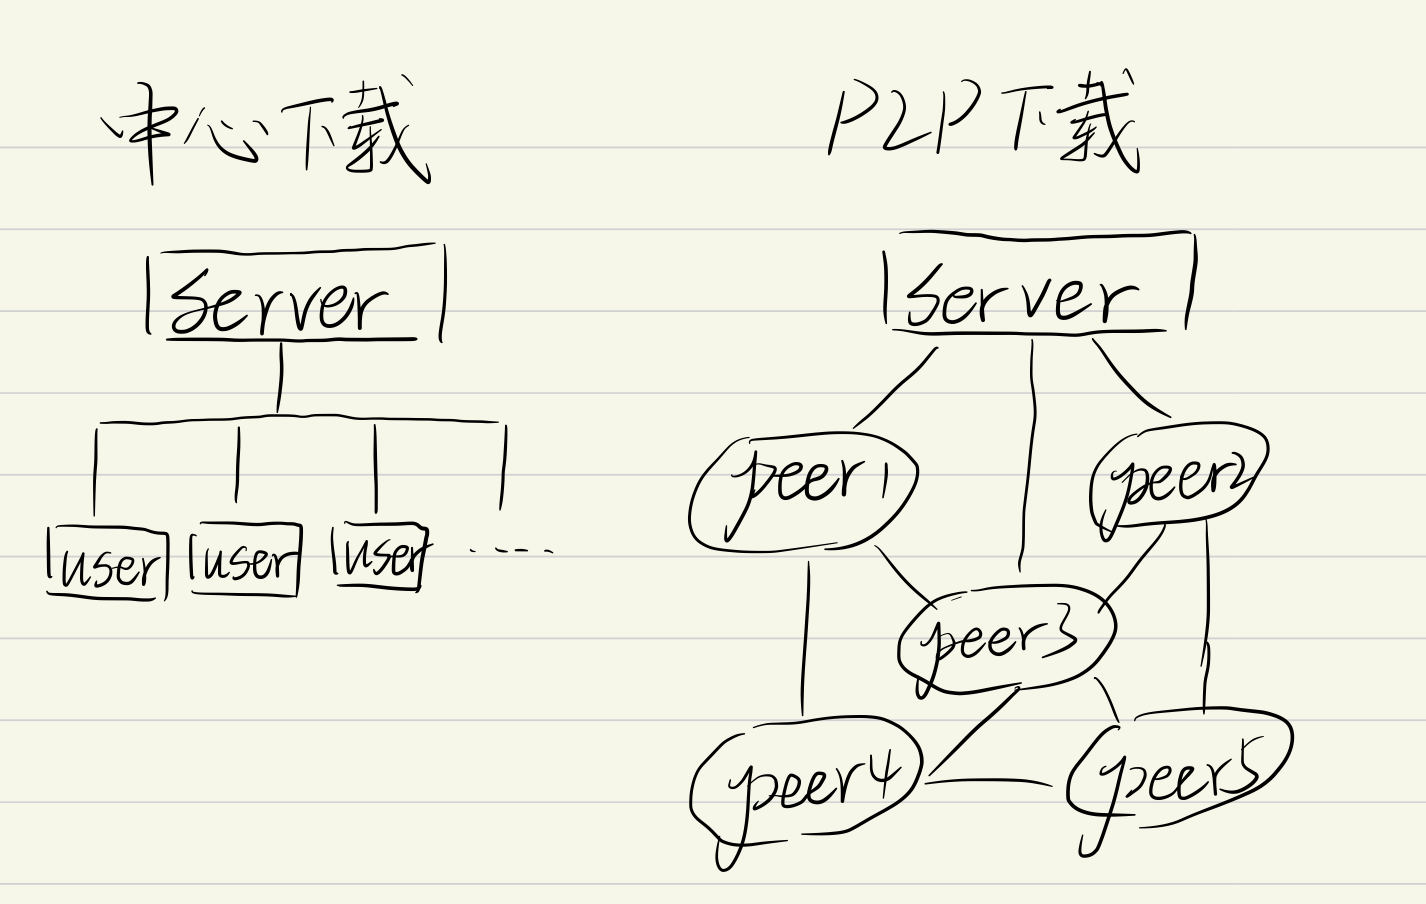 中心下载
Server
user user user ----
P2P下载
Server
peer1
peer2
peer3
peer4
peer5